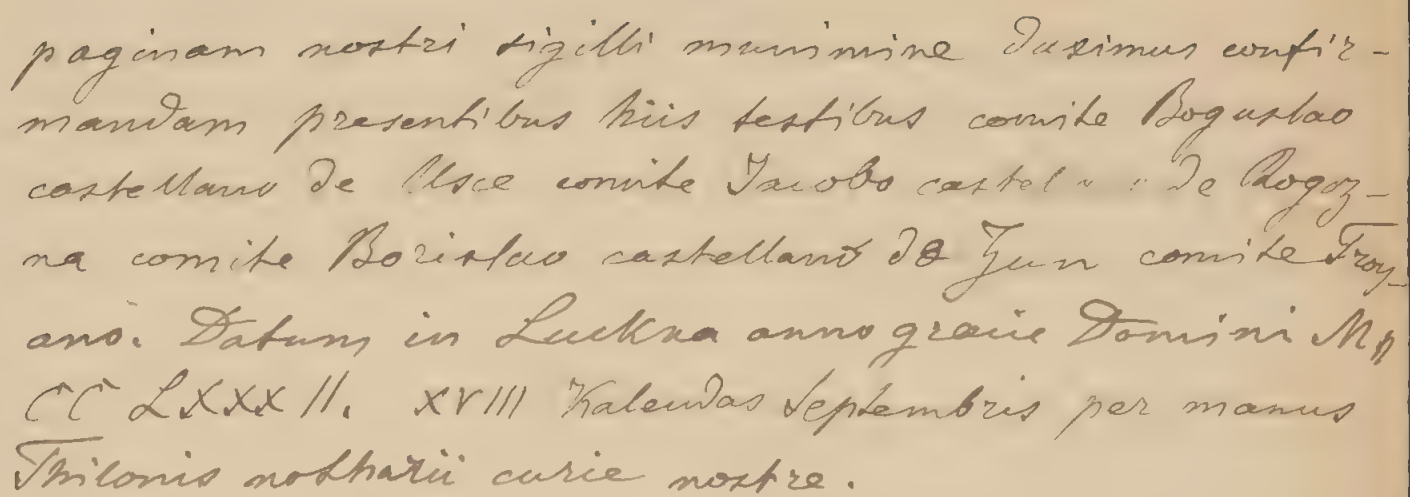 paginam nostri sigilli munimine duximus confir-
mandam presentibus hiis testibus comite Boguslao
castellano de Usce comite Jacobo castel de Rogoz-
na comite Borislao castellano de Jun comite Troy-
ano. Datum in Luckna anno gracie Domini M
CC LXXXII. XVIII Kalendas Septembris per manus
Thilonis notharii curie nostre.